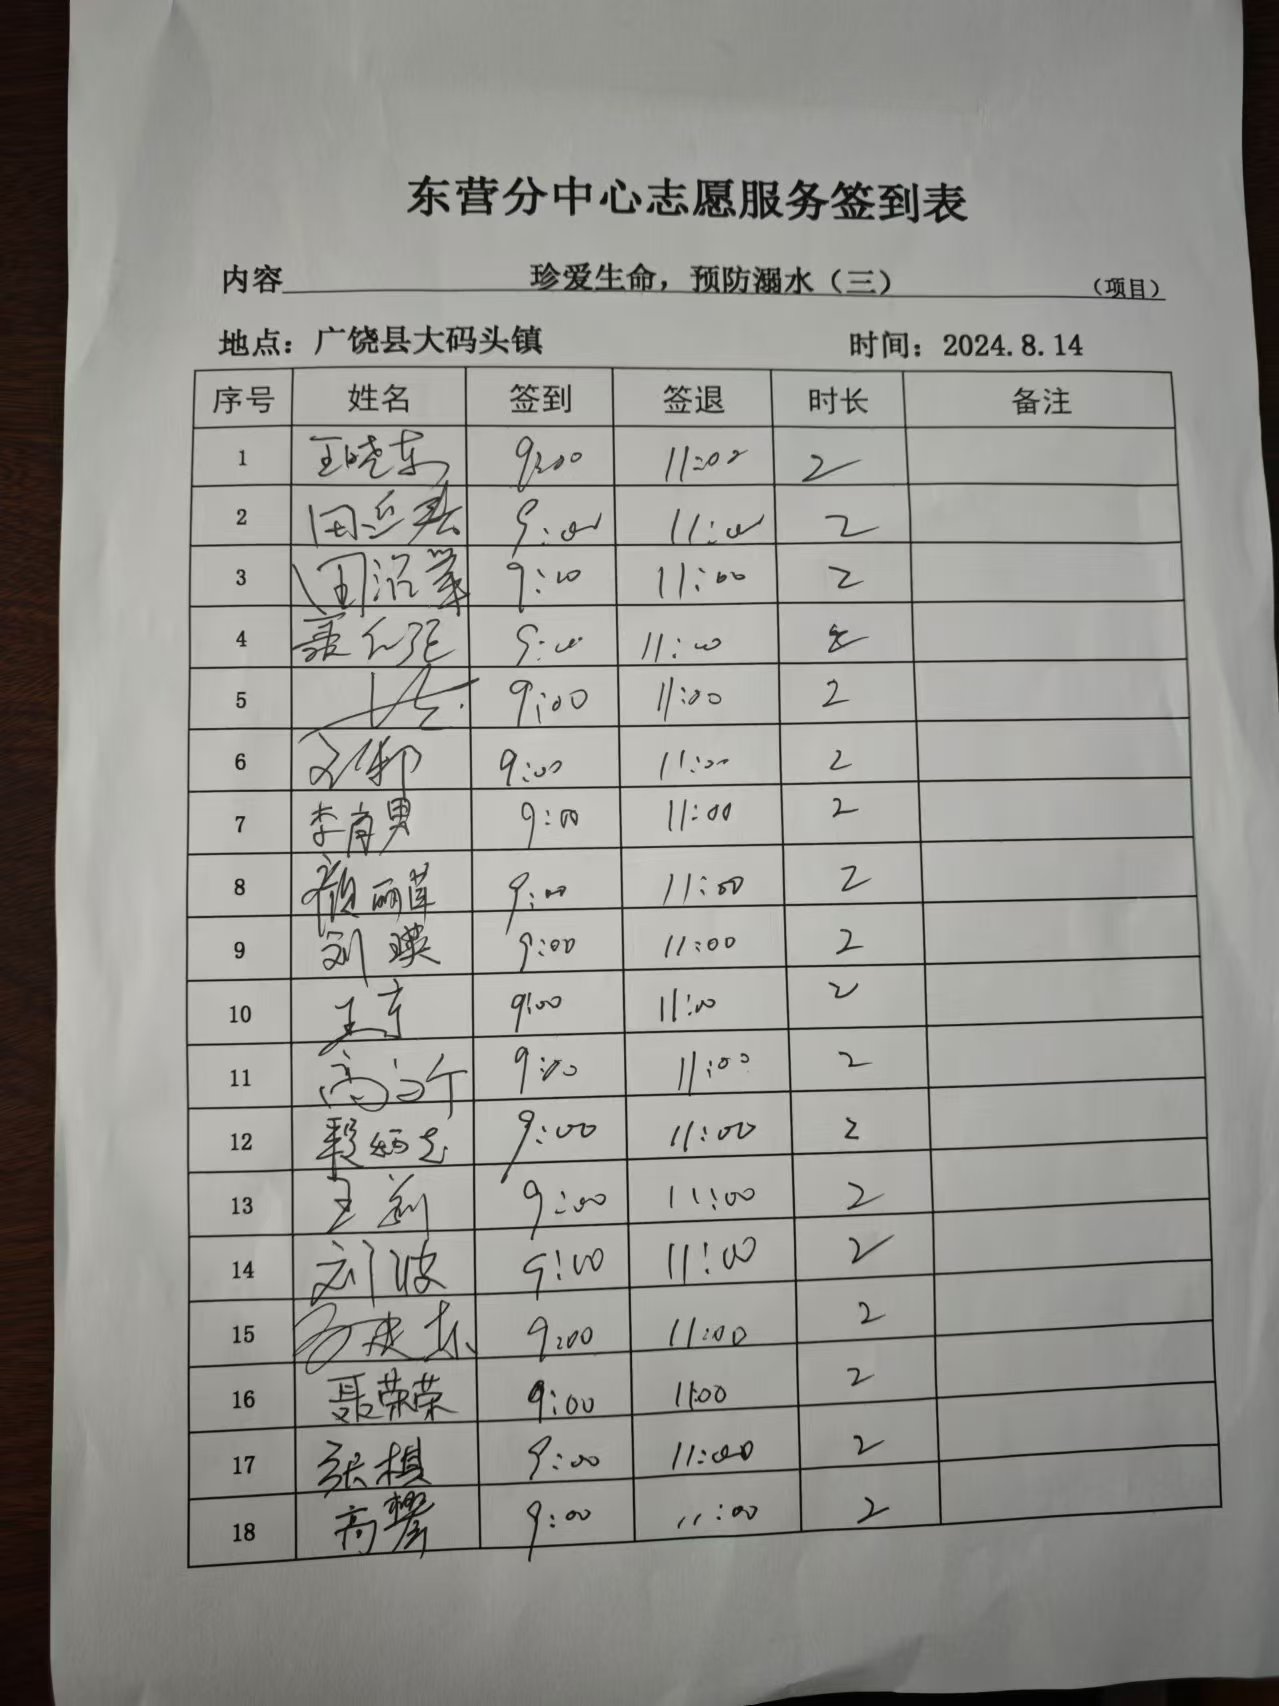 东营分中心志愿服务签到表
内容 珍爱生命，预防溺水（三） （项目）
地点：广饶县大码头镇 时间：2024.8.14
序号 姓名 签到 签退 时长 备注
1 王晓东 9:00 11:00 2
2 9:00 11:00 2
3 9:00 11:00 2
4 9:00 11:00 2
5 9:00 11:00 2
6 9:00 11:00 2
7 李育男 9:00 11:00 2
8 颜丽萍 9:00 11:00 2
9 刘瑛 9:00 11:00 2
10 9:00 11:00 2
11 9:00 11:00 2
12 9:00 11:00 2
13 王莉 9:00 11:00 2
14 刘波 9:00 11:00 2
15 9:00 11:00 2
16 聂荣荣 9:00 11:00 2
17 张棋 9:00 11:00 2
18 9:00 11:00 2